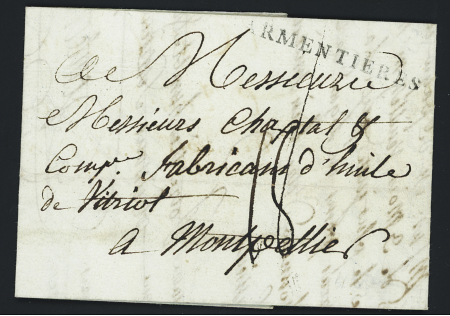 ARMENTIERES
A Messieurs
Messieurs Chaptal &
Comp.e fabricans d'huile
de Vitriol
a Montpellier